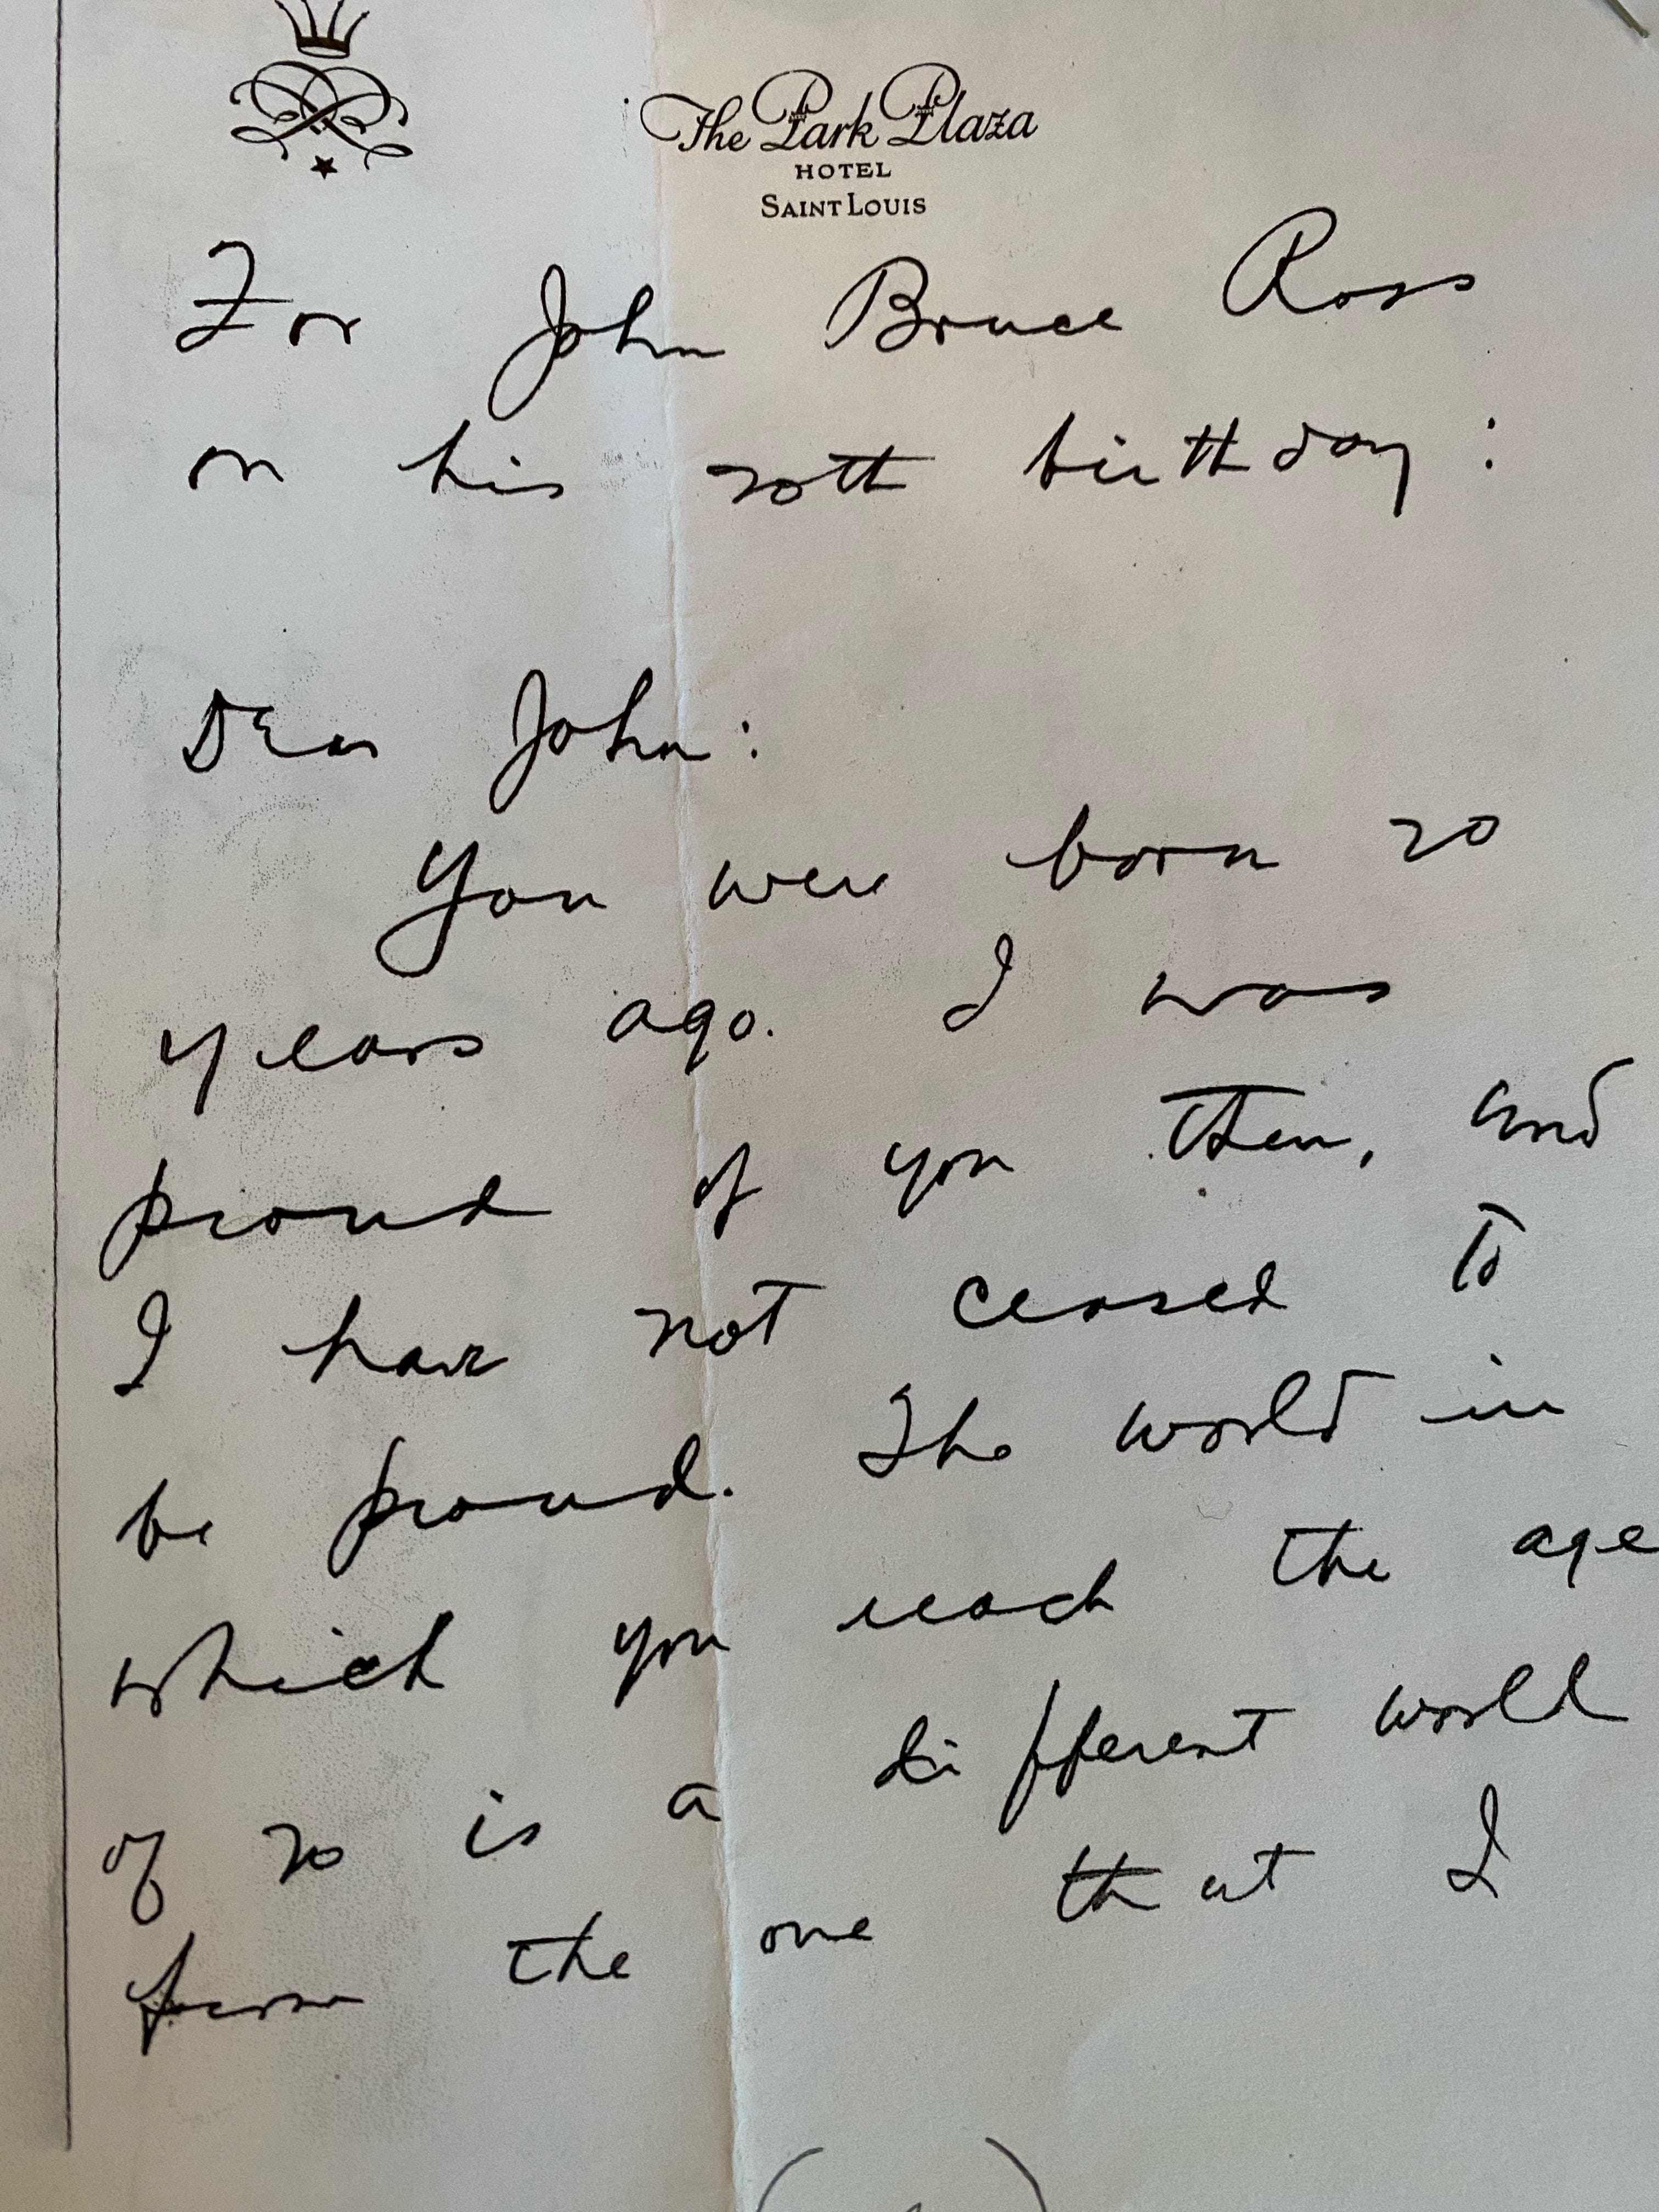 The Park Plaza
HOTEL
SAINT LOUIS
For John Bruce Ross
on his 20th birthday:
Dear John:
You were born 20
years ago. I was
proud of you then, and
I have not ceased to
be proud. The world in
which you reach the age
of 20 is a different world
from the one that I